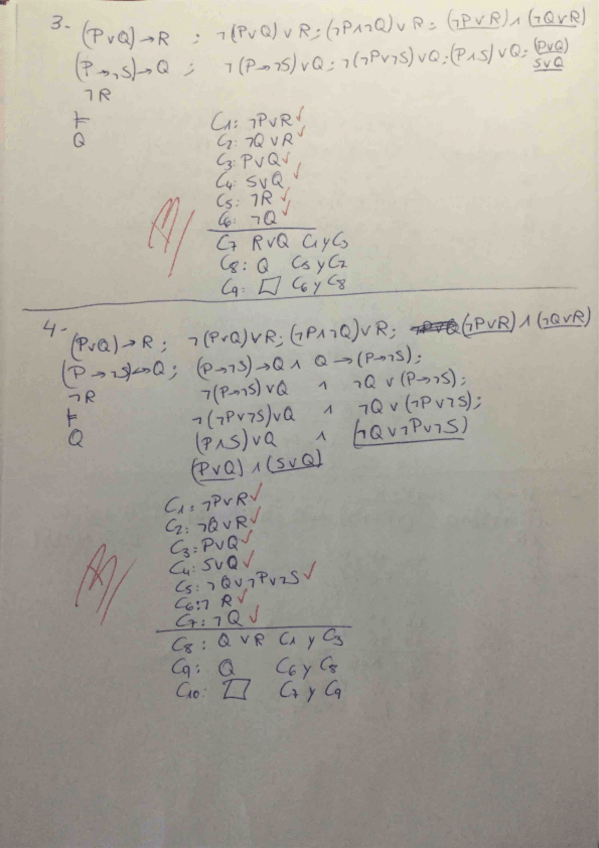 3.- (P∨Q)→R ; ¬(P∨Q)∨R; (¬P∧¬Q)∨R; (¬P∨R)∧(¬Q∨R)
(P→¬S)→Q ; ¬(P→¬S)∨Q; ¬(¬P∨¬S)∨Q; (P∧S)∨Q; (P∨Q)
S∨Q
¬R
⊨
Q
C1: ¬P∨R ✓
C2: ¬Q∨R ✓
C3: P∨Q ✓
C4: S∨Q ✓
C5: ¬R ✓
C6: ¬Q ✓
C7 R∨Q C1 y C3
C8: Q C5 y C7
C9: □ C6 y C8
4- (P∨Q)→R ; ¬(P∨Q)∨R; (¬P∧¬Q)∨R; (¬P∨R)∧(¬Q∨R)
(P→¬S)↔Q; (P→¬S)→Q ∧ Q→(P→¬S);
¬R ¬(P→¬S)∨Q ∧ ¬Q∨(P→¬S);
⊨ ¬(¬P∨¬S)∨Q ∧ ¬Q∨(¬P∨¬S);
Q (P∧S)∨Q ∧ (¬Q∨¬P∨¬S)
(P∨Q)∧(S∨Q)
C1: ¬P∨R ✓
C2: ¬Q∨R ✓
C3: P∨Q ✓
C4: S∨Q ✓
C5: ¬Q∨¬P∨¬S ✓
C6: ¬R ✓
C7: ¬Q ✓
C8: Q∨R C1 y C3
C9: Q C6 y C8
C10: □ C7 y C9